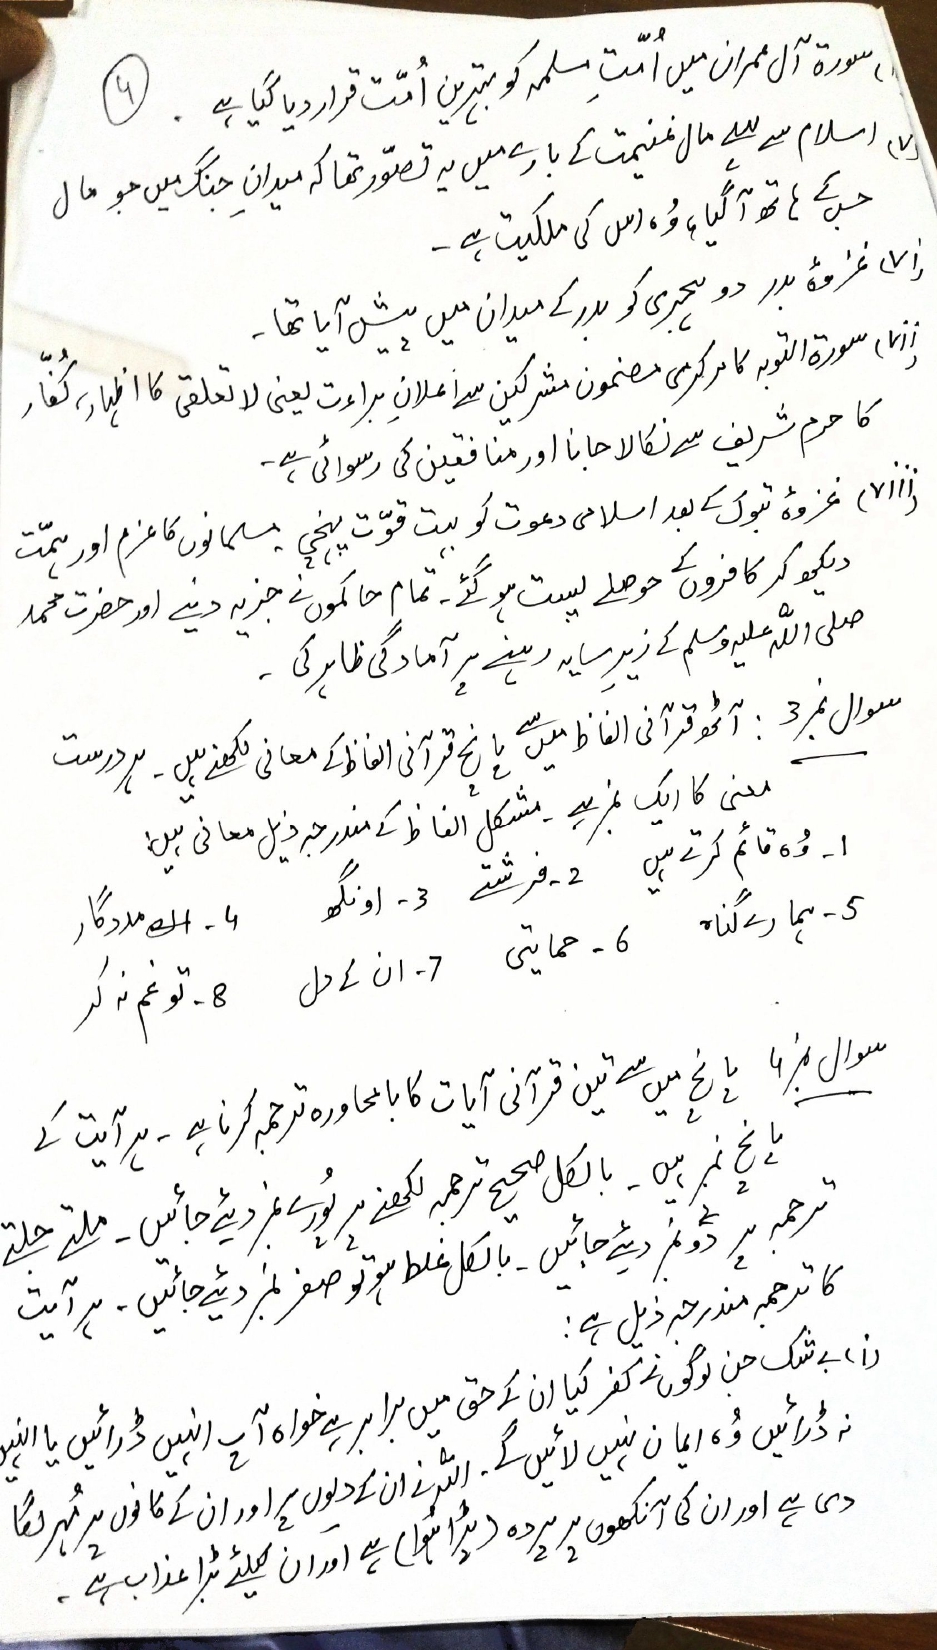 ۴
سورۃ آل عمران میں اُمّتِ مسلمہ کو بہترین اُمّت قرار دیا گیا ہے ۔
(v) اسلام سے پہلے مال غنیمت کے بارے میں یہ تصوّر تھا کہ میدانِ جنگ میں جو مال
جس کے ہاتھ آگیا، وُہ اس کی ملکیت ہے ۔
(vi) غزوۂ بدر دو ہجری کو بدر کے میدان میں پیش آیا تھا ۔
(vii) سورۃ التوبہ کا مرکزی مضمون مشرکین سے اعلانِ براءت یعنی لا تعلقی کا اظہار، کُفّار
کا حرم شریف سے نکالا جانا اور منافقین کی رسوائی ہے ۔
(viii) غزوۂ تبوک کے بعد اسلامی دعوت کو بہت قوّت پہنچی ۔ مسلمانوں کا عزم اور ہمّت
دیکھ کر کافروں کے حوصلے پست ہو گئے ۔ تمام حاکموں نے جزیہ دینے اور حضرت محمد
صلی اللّٰہ علیہ وسلم کے زیرِ سایہ رہنے پر آمادگی ظاہر کی ۔
سوال نمبر 3 : آٹھ قرآنی الفاظ میں سے پانچ قرآنی الفاظ کے معانی لکھنے ہیں ۔ ہر درست
معنی کا ایک نمبر ہے ۔ مشکل الفاظ کے مندرجہ ذیل معانی ہیں:
1 ۔ وُہ قائم کرتے ہیں 2 ۔ فرشتے 3 ۔ اونگھ 4 ۔ مددگار
5 ۔ ہمارے گناہ 6 ۔ حمایتی 7 ۔ ان کے دل 8 ۔ تو غم نہ کر
سوال نمبر 4 پانچ میں سے تین قرآنی آیات کا بامحاورہ ترجمہ کرنا ہے ۔ ہر آیت کے
پانچ نمبر ہیں ۔ بالکل صحیح ترجمہ لکھنے پر پُورے نمبر دیئے جائیں ۔ ملتے جلتے
ترجمہ پر دو نمبر دیئے جائیں ۔ بالکل غلط ہو تو صفر نمبر دیئے جائیں ۔ ہر آیت
کا ترجمہ مندرجہ ذیل ہے :
(i) بے شک جن لوگوں نے کفر کیا ان کے حق میں برابر ہے خواہ آپ انہیں ڈرائیں یا انہیں
نہ ڈرائیں وُہ ایمان نہیں لائیں گے ۔ اللّٰہ نے ان کے دلوں پر اور ان کے کانوں پر مُہر لگا
دی ہے اور ان کی آنکھوں پر پردہ (پڑا ہُوا) ہے اور ان کیلئے بڑا عذاب ہے ۔